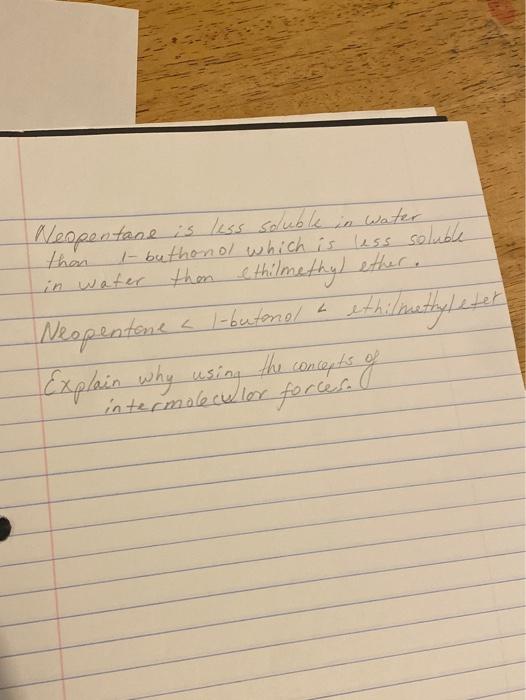 Neopentane is less soluble in water
than 1-buthanol which is less soluble
in water than ethilmethyl ether.
Neopentane < 1-butanol < ethilmethyleter
Explain why using the concepts of
intermolecular forces.